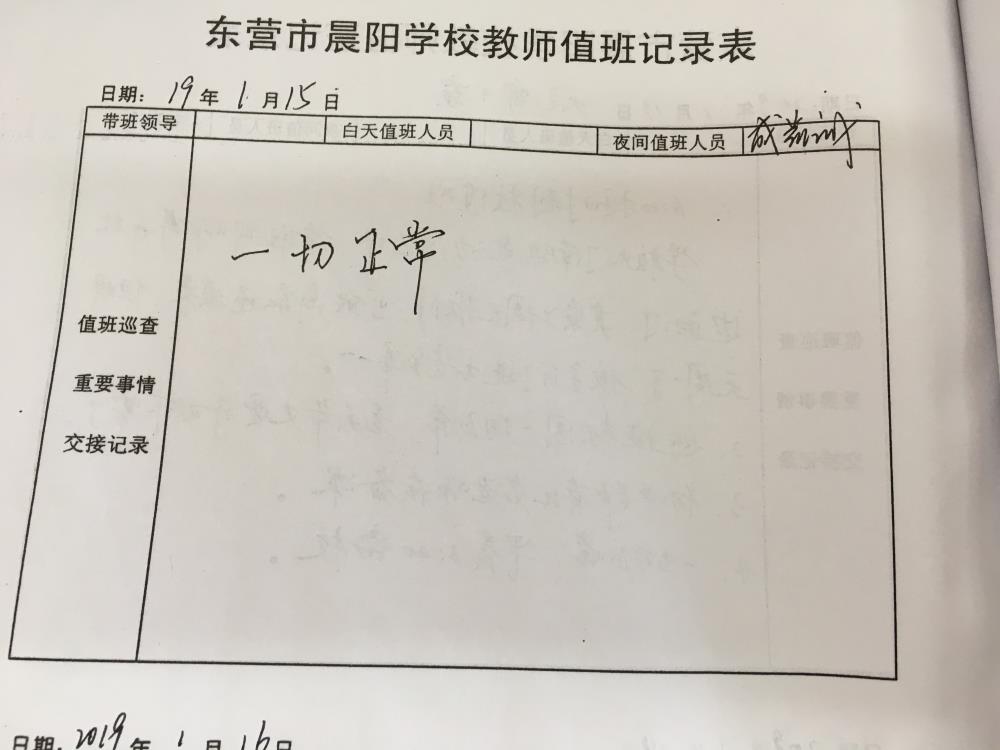 东营市晨阳学校教师值班记录表
日期：19年1月15日
带班领导 白天值班人员 夜间值班人员
一切正常
值班巡查
重要事情
交接记录
日期：2019年1月16日